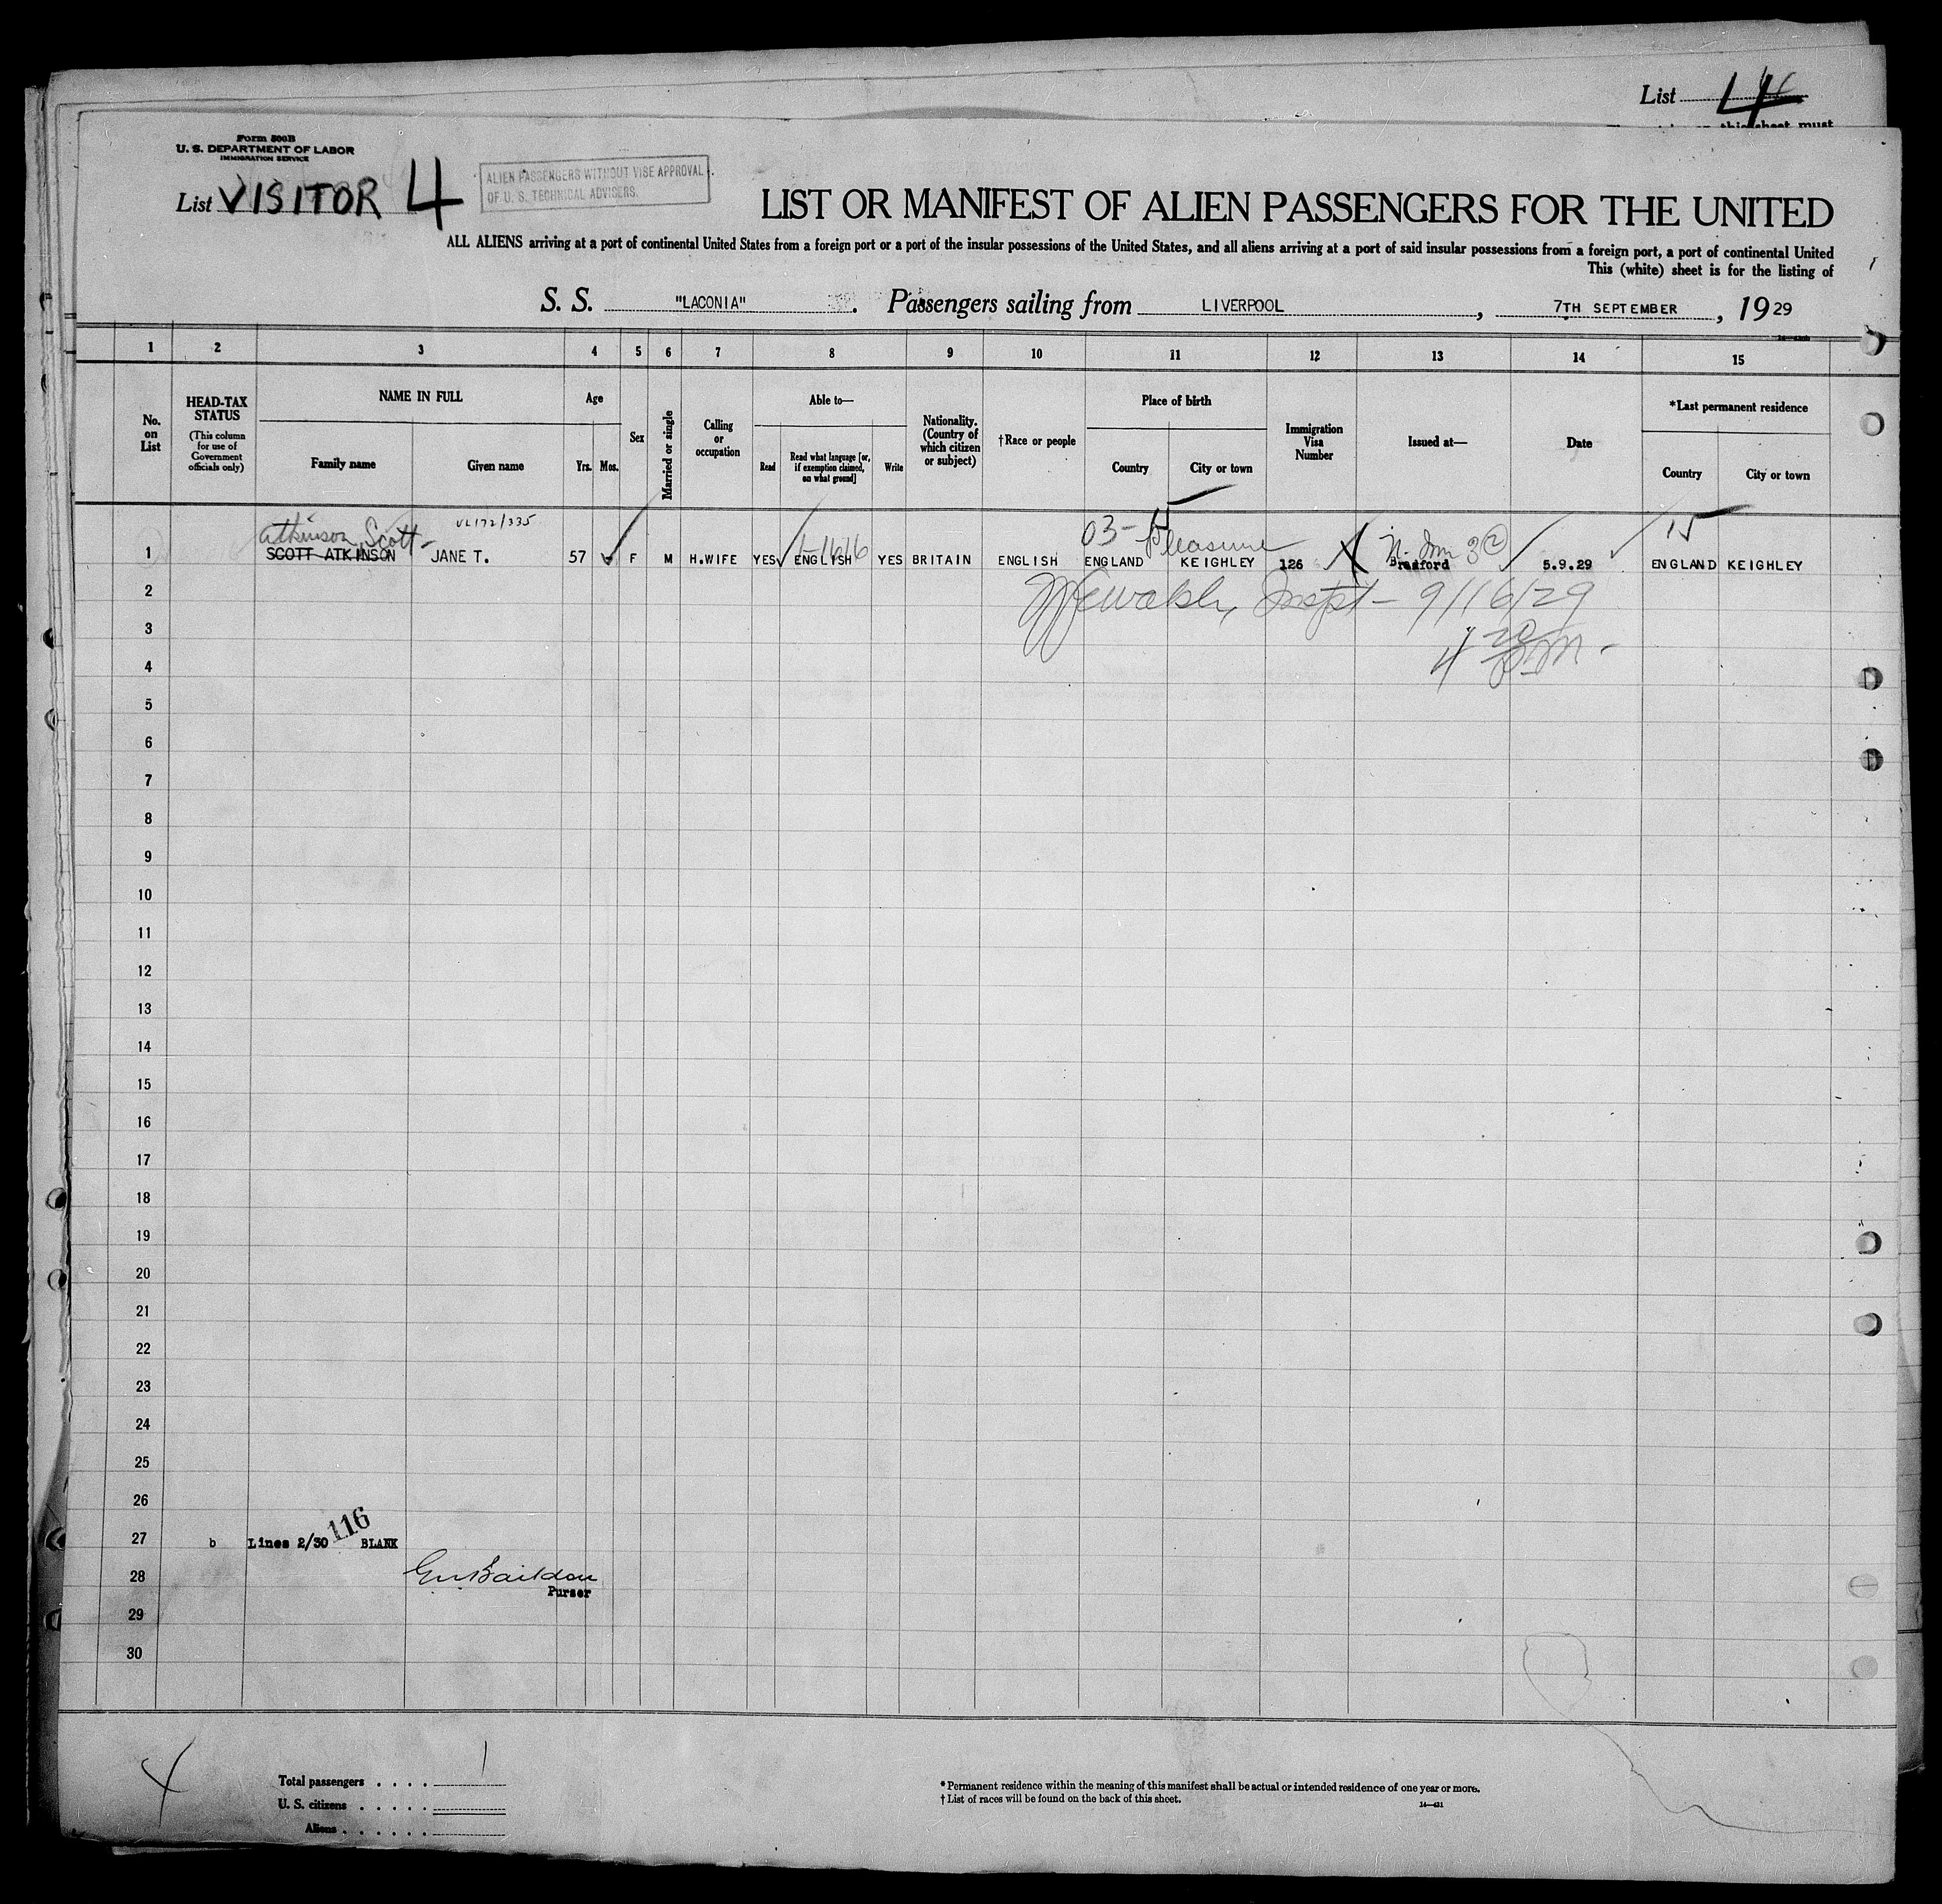 List 4
this sheet must
Form 500B
U. S. DEPARTMENT OF LABOR
IMMIGRATION SERVICE
List VISITOR 4
ALIEN PASSENGERS WITHOUT VISE APPROVAL
OF U. S. TECHNICAL ADVISERS.
LIST OR MANIFEST OF ALIEN PASSENGERS FOR THE UNITED
ALL ALIENS arriving at a port of continental United States from a foreign port or a port of the insular possessions of the United States, and all aliens arriving at a port of said insular possessions from a foreign port, a port of continental United
This (white) sheet is for the listing of
S. S. "LACONIA". Passengers sailing from LIVERPOOL, 7TH SEPTEMBER, 1929
1 2 3 4 5 6 7 8 9 10 11 12 13 14 15
No. on List
HEAD-TAX STATUS (This column for use of Government officials only)
NAME IN FULL
Family name Given name
Age
Yrs. Mos.
Sex
Married or single
Calling or occupation
Able to—
Read
Read what language [or, if exemption claimed, on what ground]
Write
Nationality. (Country of which citizen or subject)
†Race or people
Place of birth
Country City or town
Immigration Visa Number
Issued at—
Date
*Last permanent residence
Country City or town
Atkinson, Scott- VL172/335 03- Pleasure 3(2) 15
1 SCOTT ATKINSON JANE T. 57 F M H.WIFE YES ENGLISH YES BRITAIN ENGLISH ENGLAND KEIGHLEY 126 Bradford 5.9.29 ENGLAND KEIGHLEY
2 Walsh, Inspt- 9/16/29
3
4 4 20 pm-
5
6
7
8
9
10
11
12
13
14
15
16
17
18
19
20
21
22
23
24
25
26
27 b Lines 2/30 116 BLANK
28 Baildon
Purser
29
30
Total passengers . . . . 1
U. S. citizens . . . . .
Aliens . . . . . .
* Permanent residence within the meaning of this manifest shall be actual or intended residence of one year or more.
† List of races will be found on the back of this sheet.
14—431